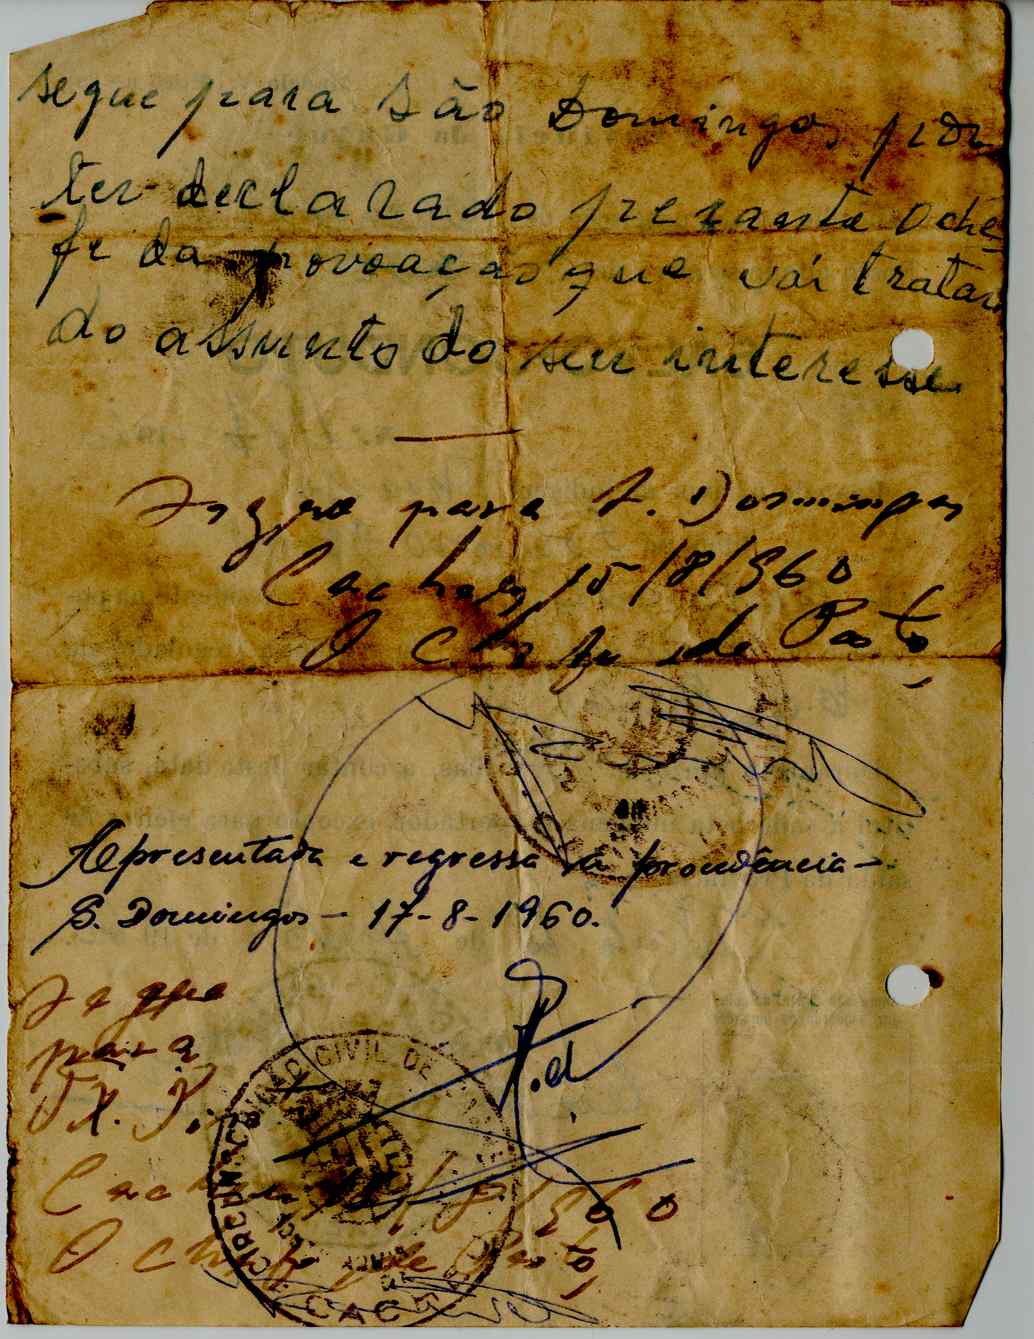 segue para São Domingos, por
ter declarado perante o che-
fe da povoação que vai tratar
do assunto do seu interesse
Segue para S. Domingos
Cacheu, 15/8/960
O Chefe de Posto,
Apresentada e regressa à procedência —
S. Domingos — 17-8-1960.
Segue
para
Cacheu /8/960
O Chefe de Posto,
CIRCUNSCRIÇÃO CIVIL DE
CAC